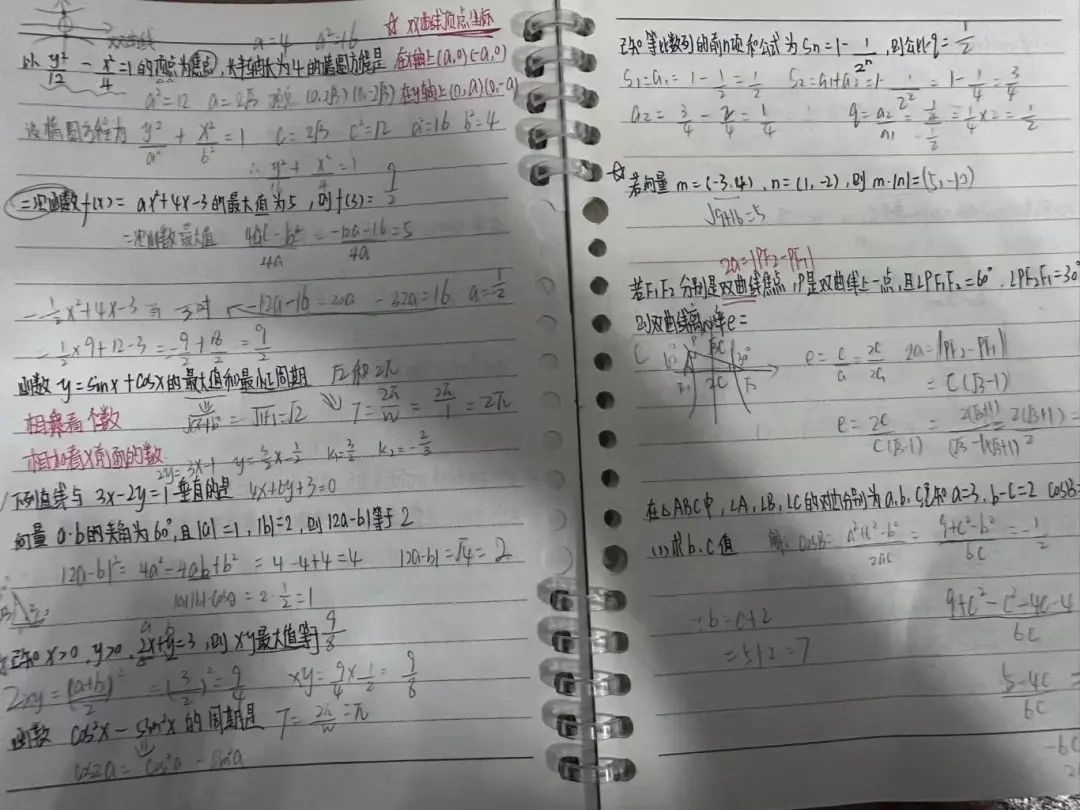 双曲线 a=4 a²=16 ☆ 双曲线顶点坐标
以 y²/12 - x²/4 = 1 的顶点为焦点,长半轴长为 4 的椭圆方程是 在x轴上(a,0)(-a,0)
a²=12 a=2√3 (0,2√3)(0,-2√3) 在y轴上(0,a)(0,-a)
设椭圆方程为 y²/a² + x²/b² = 1 c=2√3 c²=12 a²=16 b²=4
∴ y²/16 + x²/4 = 1
二次函数 f(x)= ax²+4x-3 的最大值为5,则 f(3)= 9/2
二次函数最大值 4ac-b²/4a = -12a-16/4a = 5
-1/2x²+4x-3 当 3时 -12a-16=20a -32a=16 a=-1/2
-1/2×9+12-3=-9/2+18/2=9/2
函数 y=sinx+cosx的最大值和最小正周期 √2 和 2π
相乘看个数 √a²+b² = √1+1=√2 T=2π/w=2π/1=2π
相加看x前面的数 2y=3x-1 y=3/2x-1/2 k₁=3/2 k₂=-2/3
下列直线与 3x-2y=1 垂直的是 4x+6y+3=0
向量 a·b的夹角为60°,且|a|=1,|b|=2,则|2a-b|等于 2
|2a-b|²= 4a²-4ab+b² = 4-4+4=4 |2a-b|=√4=2
|a||b|·cosθ=2·1/2=1
已知 x>0,y>0,2x+y=3,则 xy最大值等于 9/8
2xy=(a+b/2)²=(3/2)²=9/4 xy=9/4×1/2=9/8
函数 cos²x-sin²x 的周期是 T=2π/w=π
cos2a=cos²a-sin²a
已知等比数列的前n项和公式为 Sn=1-1/2ⁿ,则公比q=1/2
S₁=a₁=1-1/2=1/2 S₂=a₁+a₂=1-1/2²=1-1/4=3/4
a₂=3/4-2/4=1/4 q=a₂/a₁=1/4/1/2=1/4×2=1/2
☆ 若向量 m=(-3,4),n=(1,-2),则 |m|·n=(5,-10)
√9+16=5
2a=|PF₂-PF₁|
若F₁F₂ 分别是双曲线焦点,P是双曲线上一点,且∠PF₁F₂=60°,∠PF₂F₁=30°
则双曲线离心率e=
e=c/a=2c/2a 2a=|PF₂-PF₁|
=C(√3-1)
e=2c/C(√3-1)=2(√3+1)/(√3-1)(√3+1)=2(√3+1)/2=
在△ABC中,∠A,∠B,∠C的对边分别为a,b,c,已知a=3,b-c=2 cosB=
(1)求b,c值 解:cosB=a²+c²-b²/2ac=9+c²-b²/6c=-1/2
∵b=c+2 9+c²-c²-4c-4/6c
=5+2=7
5-4c/6c =
-6c